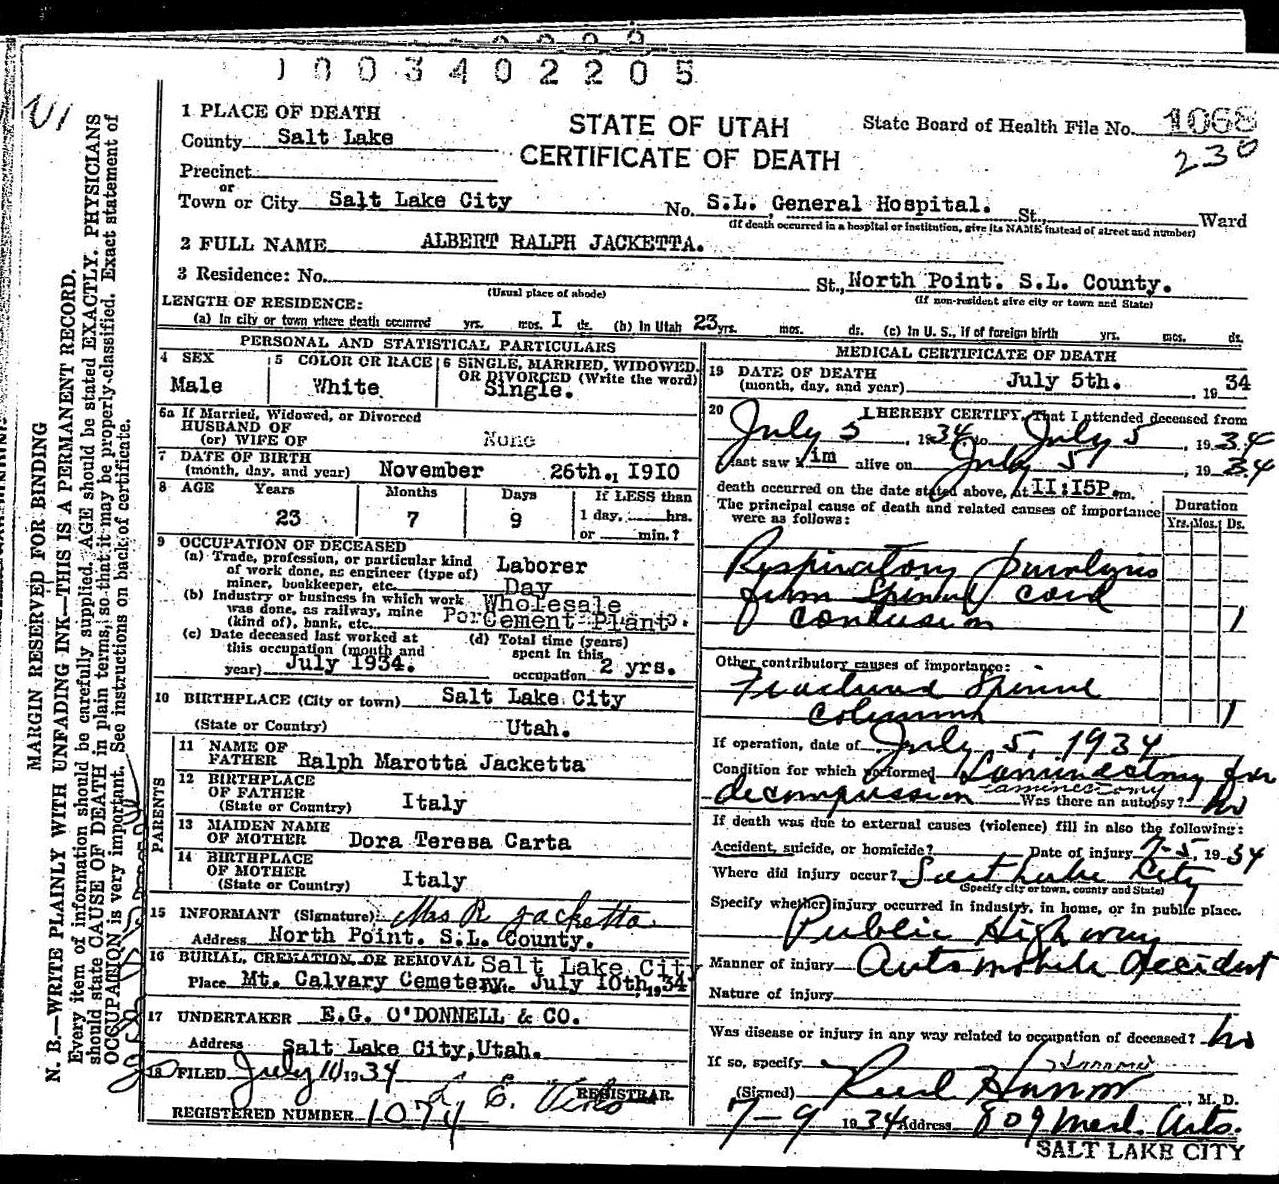 1 0 0 3 4 0 2 2 0 5
MARGIN RESERVED FOR BINDING
N. B.—WRITE PLAINLY WITH UNFADING INK—THIS IS A PERMANENT RECORD.
Every item of information should be carefully supplied. AGE should be stated EXACTLY. PHYSICIANS
should state CAUSE OF DEATH in plain terms, so that it may be properly classified. Exact statement of
OCCUPATION is very important. See instructions on back of certificate.
STATE OF UTAH
CERTIFICATE OF DEATH
State Board of Health File No. 1068
230
1 PLACE OF DEATH
County Salt Lake
Precinct
or
Town or City Salt Lake City No. S.L. General Hospital. St., Ward
(If death occurred in a hospital or institution, give its NAME instead of street and number)
2 FULL NAME ALBERT RALPH JACKETTA.
3 Residence: No. St., North Point. S.L. County.
(Usual place of abode) (If non-resident give city or town and State)
LENGTH OF RESIDENCE:
(a) In city or town where death occurred yrs. mos. I ds. (b) In Utah 23 yrs. mos. ds. (c) In U. S., if of foreign birth yrs. mos. ds.
PERSONAL AND STATISTICAL PARTICULARS
4 SEX
Male
5 COLOR OR RACE
White
6 SINGLE, MARRIED, WIDOWED,
OR DIVORCED (Write the word)
Single.
6a If Married, Widowed, or Divorced
HUSBAND OF
(or) WIFE OF None
7 DATE OF BIRTH
(month, day, and year) November 26th., I9I0
8 AGE Years Months Days If LESS than
23 7 9 1 day, hrs.
or min.?
9 OCCUPATION OF DECEASED
(a) Trade, profession, or particular kind
of work done, as engineer (type of)
miner, bookkeeper, etc. Laborer
Day
(b) Industry or business in which work
was done, as railway, mine
(kind of), bank, etc. Wholesale
Por Cement Plant.
(c) Date deceased last worked at
this occupation (month and
year) July 1934.
(d) Total time (years)
spent in this
occupation 2 yrs.
10 BIRTHPLACE (City or town) Salt Lake City
(State or Country) Utah.
PARENTS
11 NAME OF
FATHER Ralph Marotta Jacketta
12 BIRTHPLACE
OF FATHER
(State or Country) Italy
13 MAIDEN NAME
OF MOTHER Dora Teresa Carta
14 BIRTHPLACE
OF MOTHER
(State or Country) Italy
15 INFORMANT (Signature) Mrs R Jacketta
Address North Point. S.L. County.
16 BURIAL, CREMATION, OR REMOVAL Salt Lake City
Place Mt. Calvary Cemetery. July 10th, 1934
17 UNDERTAKER E.G. O'DONNELL & CO.
Address Salt Lake City, Utah.
18 FILED July 10 1934
REGISTRAR.
REGISTERED NUMBER 1074
MEDICAL CERTIFICATE OF DEATH
19 DATE OF DEATH
(month, day, and year) July 5th. , 19 34
20 I HEREBY CERTIFY, That I attended deceased from
July 5 , 1934 to July 5 , 1934
last saw him alive on July 5 , 1934
death occurred on the date stated above, at II:I5P. m.
The principal cause of death and related causes of importance
were as follows:
Duration
Yrs. Mos. Ds.
Respiratory paralysis
from Spinal cord
contusion 1
Other contributory causes of importance:
Fractured Spinal
column 1
If operation, date of July 5, 1934
Condition for which performed Laminectomy for
decompression Laminectomy Was there an autopsy? no
If death was due to external causes (violence) fill in also the following:
Accident, suicide, or homicide? Date of injury 7-5, 1934
Where did injury occur? Salt Lake City
(Specify city or town, county and State)
Specify whether injury occurred in industry, in home, or in public place.
Public Highway
Manner of injury Automobile Accident
Nature of injury
Was disease or injury in any way related to occupation of deceased? no
If so, specify
(Signed) M. D.
7-9 1934 Address 809 Med. Arts.
SALT LAKE CITY